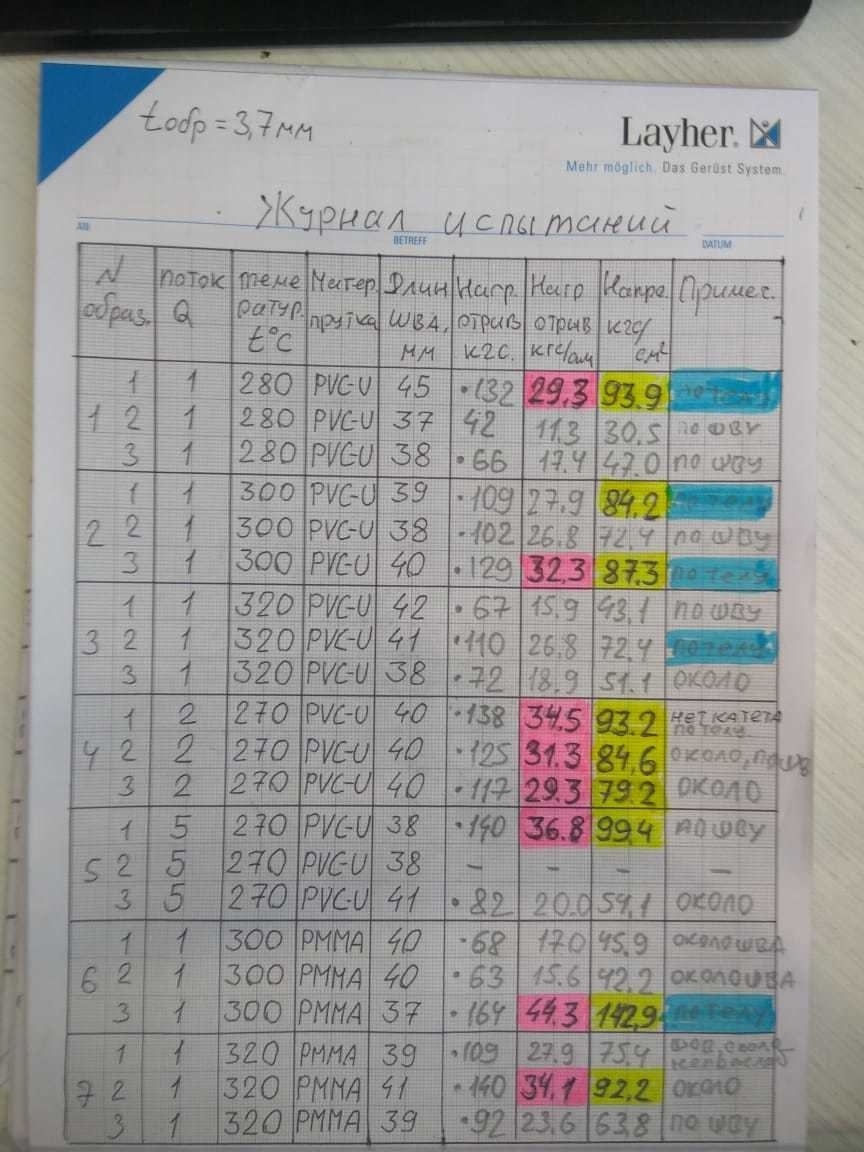 tобр = 3,7 мм
Layher.
Mehr möglich. Das Gerüst System.
Журнал испытаний
AN BETREFF DATUM
N образ. поток Q темпе ратур. t°C Матер. прутка Длин шва, мм Нагр. отрыв кгс. Нагр отрыв кгс/см Напря. кгс/см² Примеч.
1 1 1 280 PVC-U 45 132 29.3 93.9 по телу
2 1 280 PVC-U 37 42 11.3 30.5 по шву
3 1 280 PVC-U 38 66 17.4 47.0 по шву
2 1 1 300 PVC-U 39 109 27.9 84.2 по телу
2 1 300 PVC-U 38 102 26.8 72.4 по шву
3 1 300 PVC-U 40 129 32.3 87.3 по телу
3 1 1 320 PVC-U 42 67 15.9 43.1 по шву
2 1 320 PVC-U 41 110 26.8 72.4 по телу
3 1 320 PVC-U 38 72 18.9 51.1 около
4 1 2 270 PVC-U 40 138 34.5 93.2 нет катета по телу
2 2 270 PVC-U 40 125 31.3 84.6 около, по шв
3 2 270 PVC-U 40 117 29.3 79.2 около
5 1 5 270 PVC-U 38 140 36.8 99.4 по шву
2 5 270 PVC-U 38 – – – –
3 5 270 PVC-U 41 82 20.0 54,1 около
6 1 1 300 PMMA 40 68 17.0 45.9 около шва
2 1 300 PMMA 40 63 15.6 42.2 около шва
3 1 300 PMMA 37 164 44.3 142,9 по телу
7 1 1 320 PMMA 39 109 27.9 75.4 шов,
2 1 320 PMMA 41 140 34.1 92.2 около
3 1 320 PMMA 39 92 23.6 63.8 по шву